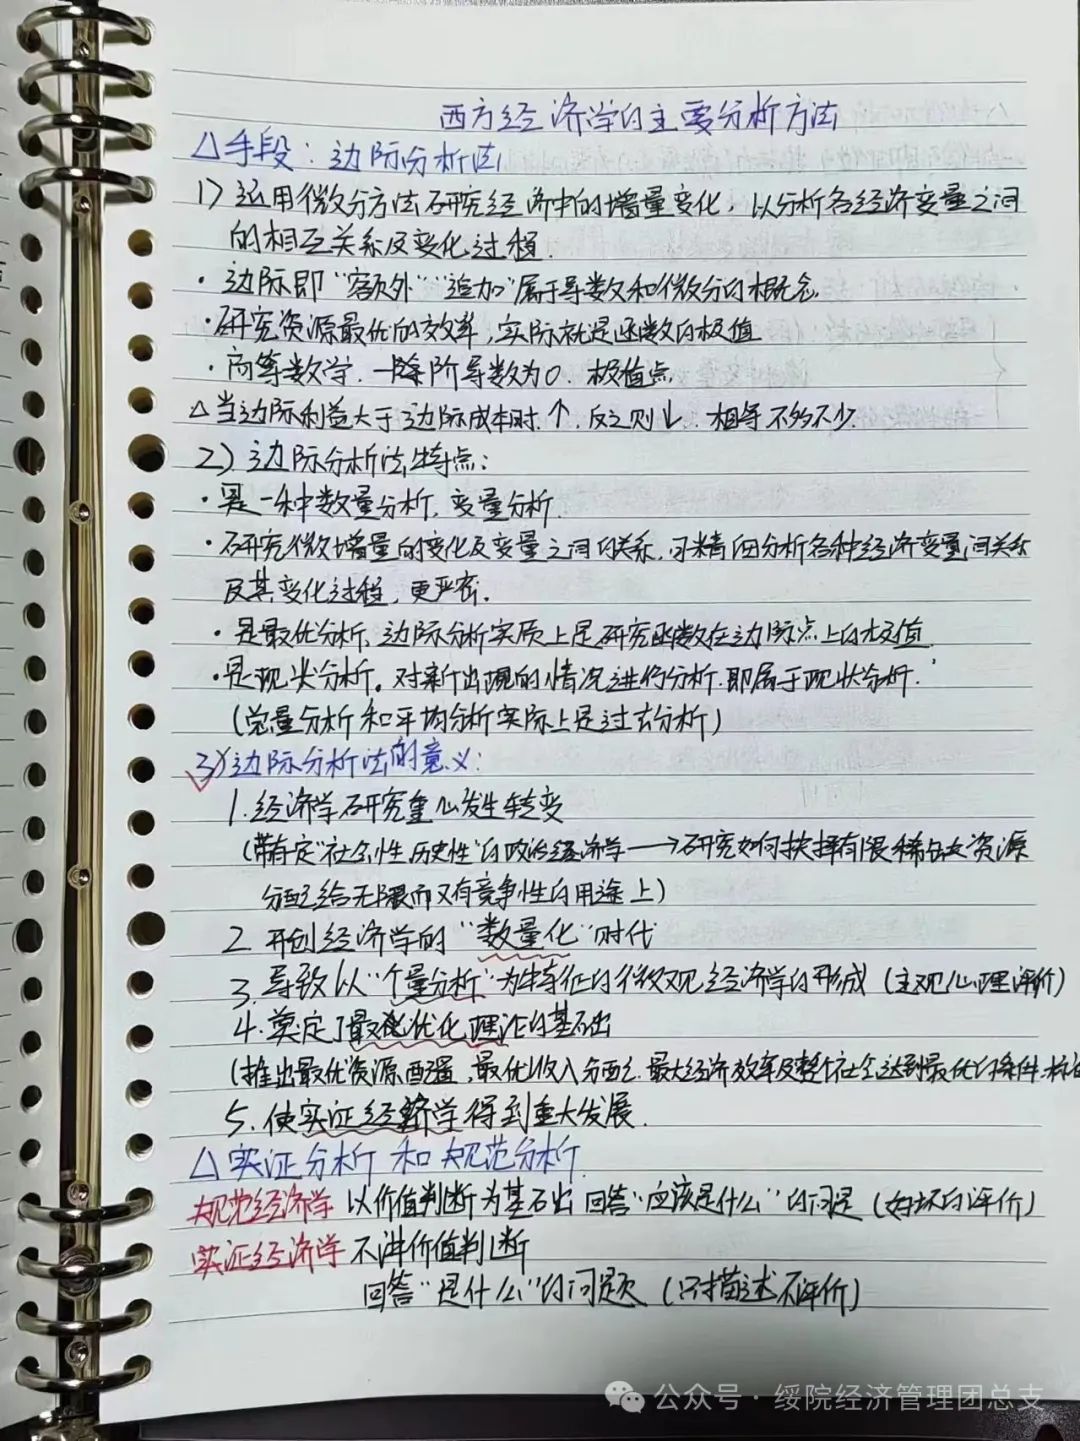 西方经济学的主要分析方法
△手段：边际分析法
1）运用微分方法研究经济中的增量变化，以分析各经济变量之间
的相互关系及变化过程.
·边际即“额外”“追加”属于导数和微分的概念.
·研究资源最优的效率,实际就是函数的极值
·高等数学.一阶导数为0.极值点
△当边际利益大于边际成本时.↑.反之则↓.相等不多不少.
2）边际分析法特点：
·是一种数量分析,变量分析.
·研究微增量的变化及变量之间的关系.可精细分析各种经济变量间关系
及其变化过程,更严密.
·是最优分析,边际分析实质上是研究函数在边际点上的极值
·是现状分析。对新出现的情况进行分析.即属于现状分析.
(总量分析和平均分析实际上是过去分析)
3）边际分析法的意义：
1.经济学研究重心发生转变
(带有定“社会性历史性”的政治经济学→研究如何抉择有限稀缺资源
分配给无限而又有竞争性的用途上)
2.开创经济学的“数量化”时代
3.导致以“个量分析”为特征的微观经济学的形成(主观心理评价)
4.奠定了最优化理论的基础
(推出最优资源配置,最优收入分配,最大经济效率及整个社会达到最优的条件.标
5.使实证经济学得到重大发展.
△实证分析和规范分析.
规范经济学 以价值判断为基础 回答“应该是什么”的问题(好坏的评价)
实证经济学 不讲价值判断
回答“是什么”的问题(只描述不评价)
公众号·绥院经济管理团总支